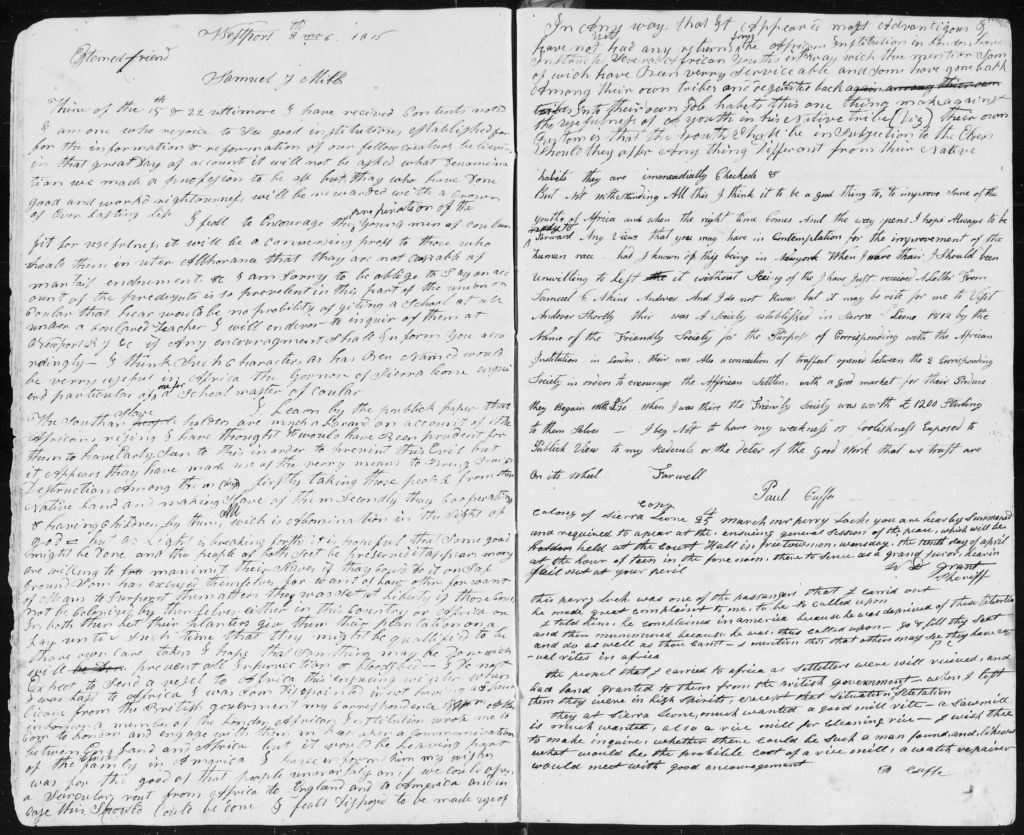 Westport 8th mo 6 1816
Esteemed friend
Samuel J Mills
Thine of the 15th & 22 ultimore I have recived Contents noted
I am one who rejoice to See good institutions established for
for the information & reformation of our fellow creatures believing
in that great Day of account it will not be asked what Denamina
tion we made a profession to be of but thay who have Done
good and workd righteousness will be rewarded with a Crown
of Ever lasting life
I feall to Encourage the prepiration of the Young men of coular
fit for usefulness it will be a convinsing proff to those who
thay are not capable of
mantail endowment &c I am Sorry to be oblige to Say on acc
ount of the predeguts is so prevelent in this part of the union on
Coular that hear would be no probibility of giting a School at all
under a Coulared teacher I will endevor to inquir of them at
Newport R I &c if Any encouragment Shall inform You acco
rdingly — I think Such Characters as has Ben Named would
be verry useful in Africa the Govnor of Sierra leone enqui
red particular of me for a School master of Coular
I Learn by the publick paper that
The Southan Slave holders are much alarmd on account of the
Africans rising I have thought it would have Been prudent for
them to have Early San to this in order to prevent this Evil but
it Appears thay have made use of the verry means to Bring
Destruction Among them firstly taking those people from their
Native land and making Slave of them Secondly thay Cooperating
& having Children by them, wich is Abomination in the Sight of
god — but as Light is breaking forth it is hopeful that Some good
might be done and the people of both Sect be preserved it appears many
are willing to manimit their Slaves if thay could do it on Saf
ground Som has excused themselves for want of how other for want
of Means to Surport them after they was Set at Liberty if those Could
not be Colonized by themselves either in this Country or Africa or
In both then Let their planters give them their plantation on a
Lay untel Such time that they might be quallified to be
thare own care taken I hope that Somthing may be Don wich
will prevent all Insurrection & bloodshed — I Do not
Expect to Send a vesel to Africa this ensuceing winter when
I was last to Africa I was Som Dispointed in not having a
licence from the British goverment my Correspondence
London a member of the London African Institution wrote me to
Com to London and engage with them in
between England and Africa but it would be Leaving part
of the family in America I have inform them my wishes
was for the good of that people univarsily and if we could open
a Surcular rout from Africa to England and to America and in
Case this Should Could be done I feall Disposed to be made use of
In Any way that It Appeard most Advantigous I
have not had any returns from the African Institution in London have
Instructed Several African Youths in the way wich thee mention Som
of wich have Been verry Serviceable and Some have gone back
Among their own tribes and
Into their own Idle habits this one thing make against
the usefulness of a Youth in his Native tribe (viz) their own
Custom is that the Youth Shall be in Subjection to the Elder
Should they offer Any thing Different from their Native
habits they are immeadially Checkeds &
But Not withstanding All this, I think it to be a good thing to, to improve Some of the
youths of Africa and when the right time Comes And the way opens I hope Always to be
ready to forward Any Views that you may have in Contemplation for the improvement of the
human race. had I known of they being in Newyork When I wave thair I Should been
unwilling to Left it without Seeing of the I have Just received A Letter From
Samuel C Akins Andover And I do not Know but it may be rite for me to Visit
Andover Shortly thir was A Society established in Sarra Leone 1812 by the
Name of the Friendly Society for the Purpost of Corresponding with the African
Institution in London. thir was Also a connection of traffect opened between the 2 Corrisponding
Society in orders to encourage the Affrican Settlers. with a good market for their Produce
they Begain with £70 When I was thire the Friendly Society was worth £1200 Sterling
to them Selves — I beg Not to have my weakness or foolishness Exposed to
Publick View to my Redecule or the detor of the Good Work that we trust are
On its Wheel Farwell
Paul Cuffe
Copy
Colony of Sierra Leone 25th march mr perry Lock you are hearby Summoned
and required to apear at the ensuing general Session of the peace, which will be
held at the Court Hall in freetown on wensday, the tenth day of april
at the hour of ten in the fore noon, there to Serve as a grand juror, hearin
fail not at your peril
W D Grant
Sheriff
this perry Lock was one of the passangers that I carid out
he made great complaint to me, to be so called upon
I told him, he complained in america because he was deprived of these liberties
and then murmured because he was thus called upon — go & fill thy Seat
and do as well as thou canst — I mention this that others may See they have eq-
-ual rites in africa P C
the people that I carried to africa as Settellers were well recived, and
had land granted to them from the british government — when I left
them they were in high Spirits, except that Situation,
they at Sierra Leone, much wanted a good mill rite — a Sawmill
is much wanted, also a rice mill for cleaning rice — I wish thee
to make enquire, whether there could be Such a man found, and likewise
what would be the probible cost of a rice mill, a watch repairer
would meet with good encouragement
P Cuffe